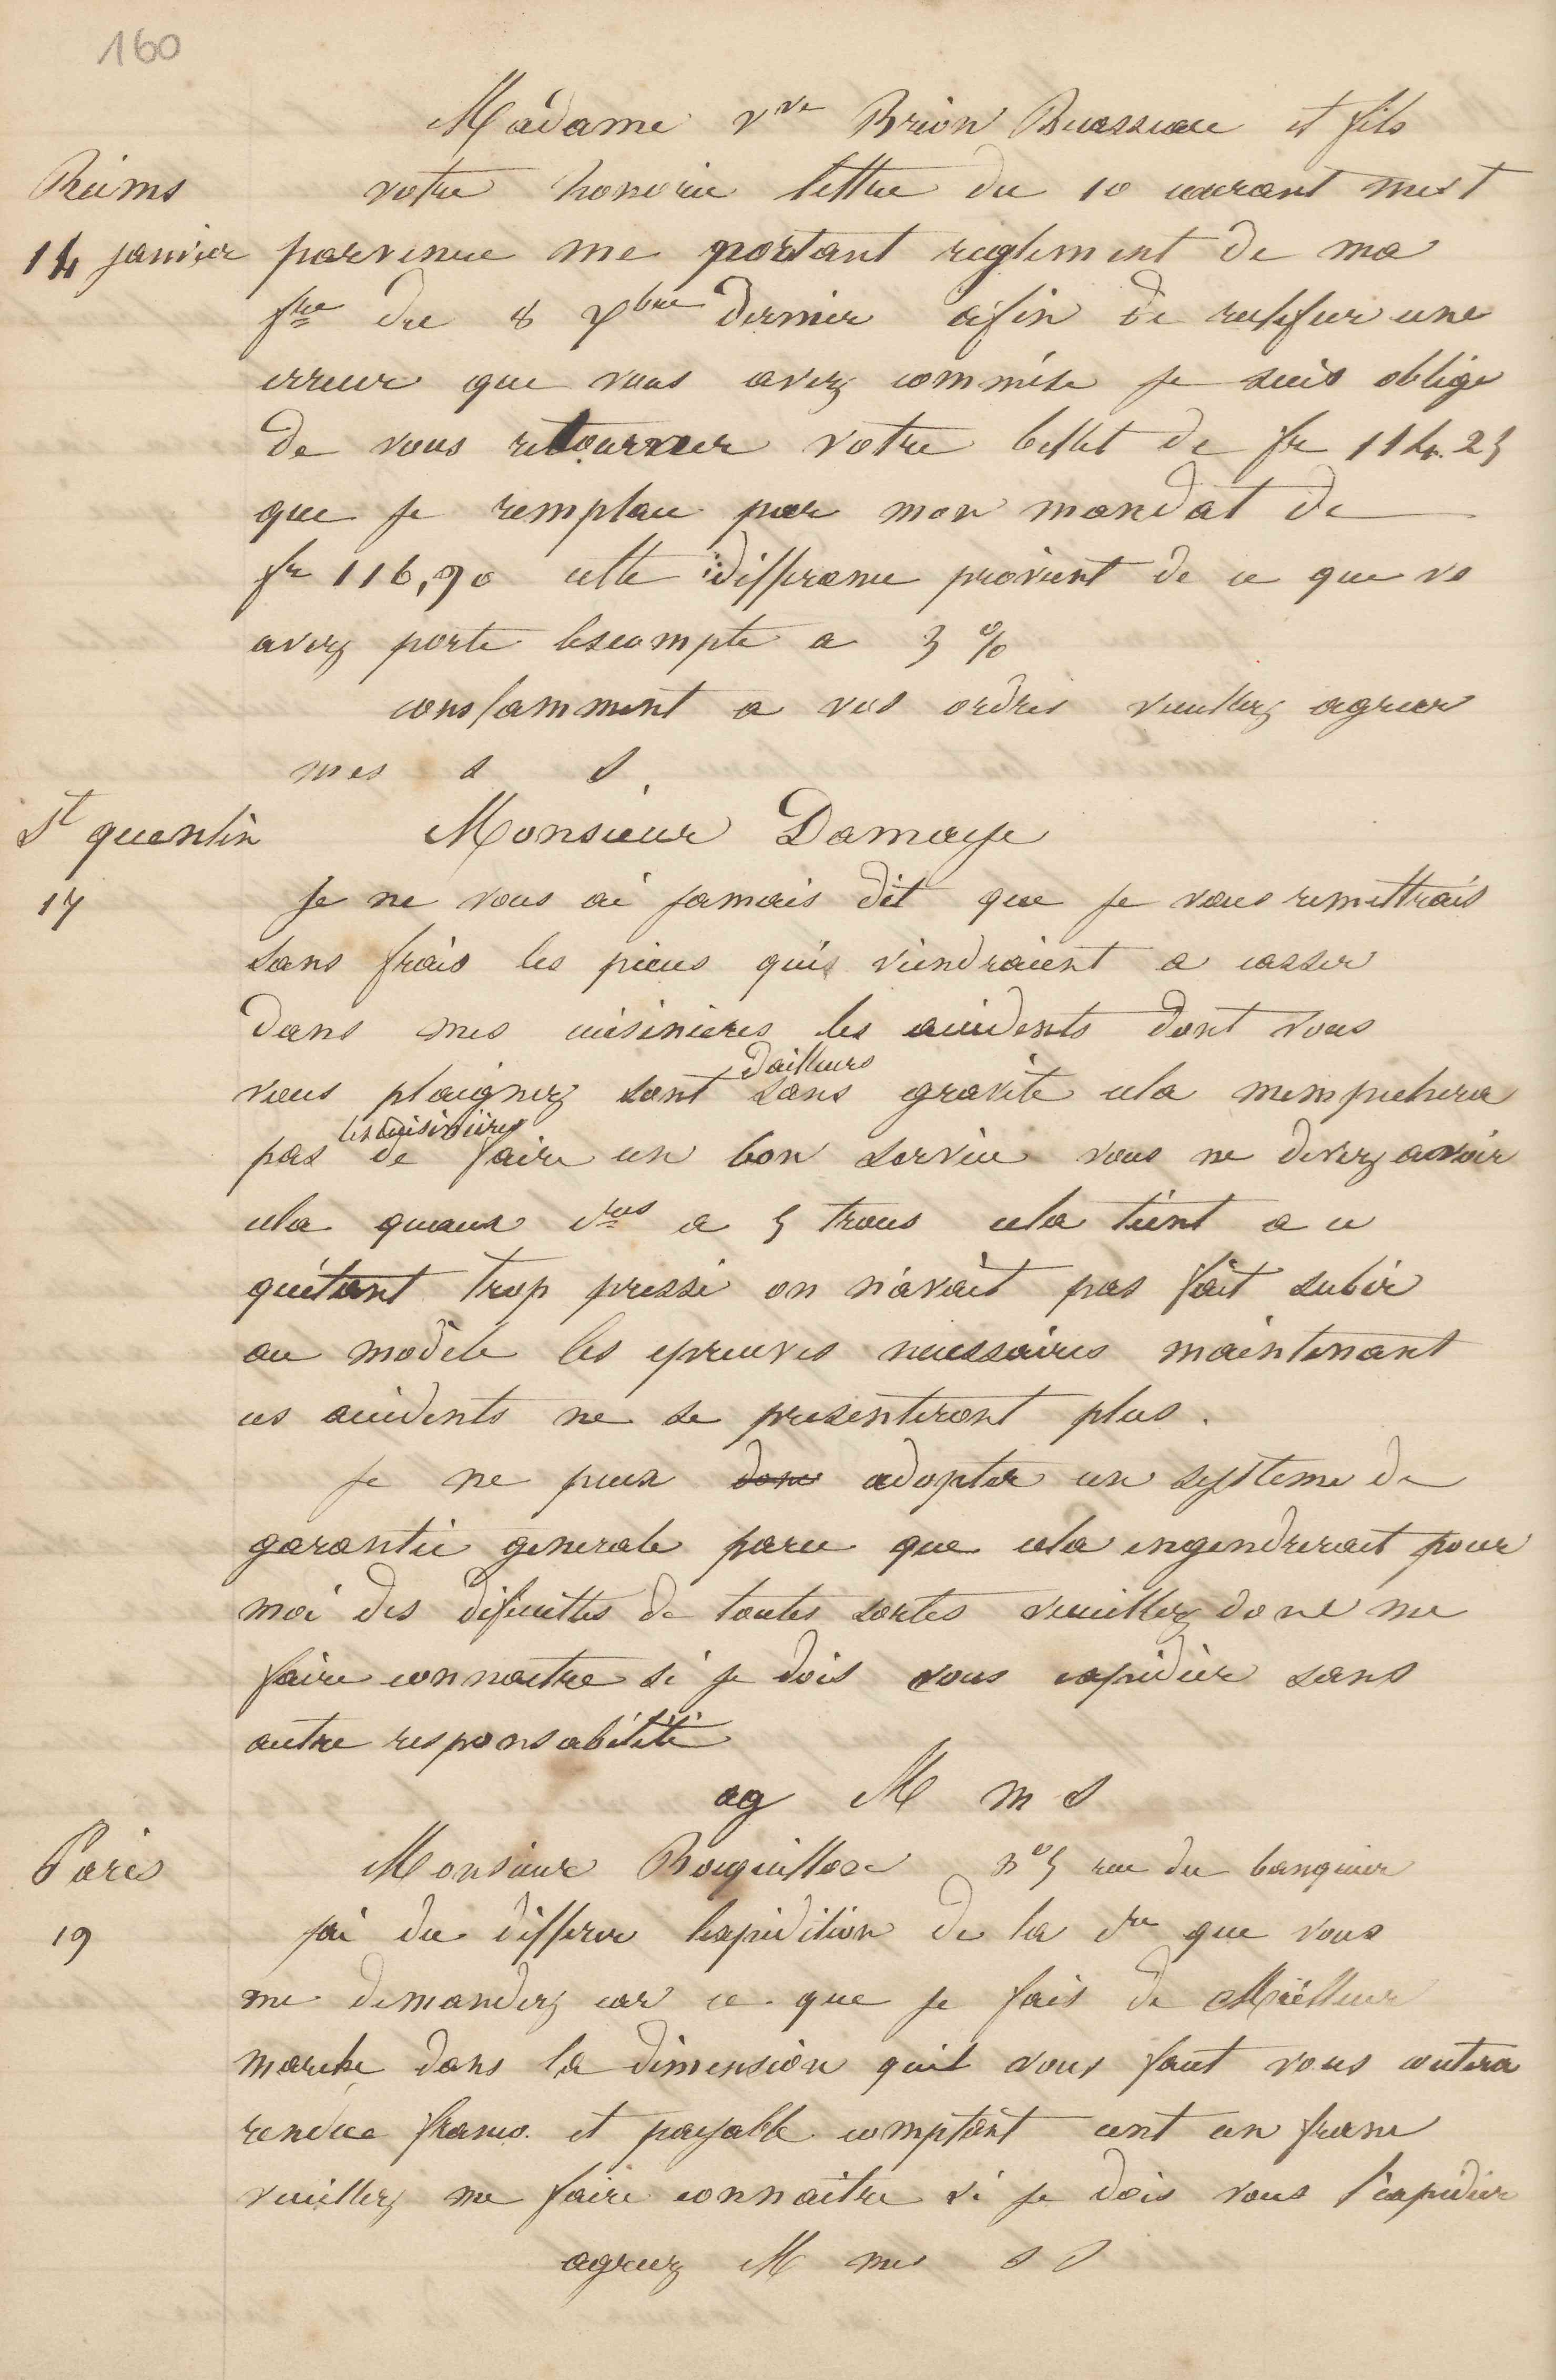 160
Madame Vve Brion Buasseau et fils
Reims votre honorée lettre du 10 courant mest
14 janvier parvenue me portant reglement de ma
fre du 8 7bre dernier afin de
erreur que vous avez commise je suis obligé
de vous retourner votre billet de fr 114.25
que je remplace par mon mandat de
fr 116,90 cette differance provient de ce que vs
avez porté lescompte a 3 %
constamment a vos ordres veuillez agreer
mes s s
St quentin Monsieur Damaye
17 Je ne vous ai jamais dit que je vous remettrais
sans frais les pieces quis viendraient a casser
dans mes cuisinieres les accidents dont vous
dailleurs
vous plaignez sont sans gravité cela mempechera
les cuisinieres
pas de faire un bon service vous ne devez avoir
cela quaux dres a 5 trous cela tient a ce
quétant trop pressé on n'avait pas fait subir
au modele les epreuves necessaires maintenant
ces accidents ne se presenteront plus.
Je ne peux donc adopter un systeme de
garantie generale parce que cela engendrerait pour
moi des dificultés de toutes sortes veuillez donc me
faire connaitre si je dois vous expidier sans
autre responsabilité
ag M m s
Paris Monsieur Bouquillon no 5 rue du banquier
19 jai du differer lexpidition de la dre que vous
me demandez car ce que je fais de Meilleur
marche dans la dimension quil vous faut vous coutera
rendue franco et payable comptant cent un franc
veuillez me faire connaitre si je dois vous l'expidier
agreez M mes s s